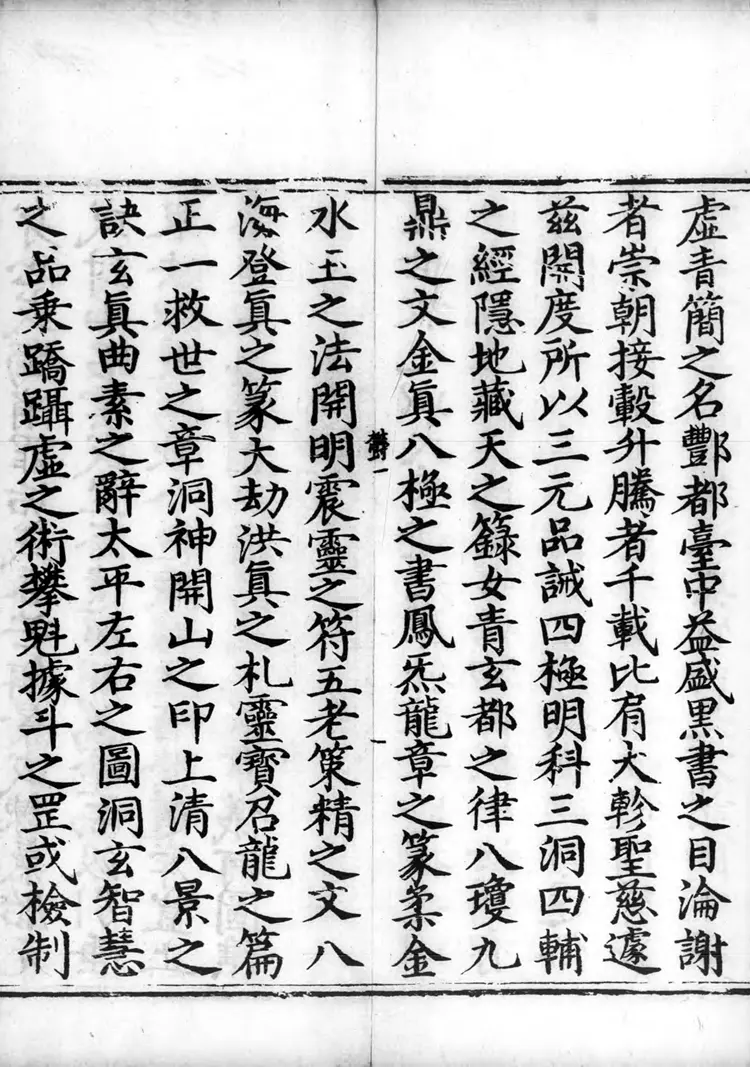 虛青簡之名酆都臺中益盛黑書之目淪謝
者崇朝接轂升騰者千載比肩大軫聖慈遽
茲開度所以三元品誡四極明科三洞四輔
之經隱地藏天之籙女青玄都之律八瓊九
鼎之文金真八極之書鳳炁龍章之篆柔金
水玉之法開明震靈之符五老策精之文八
海登真之篆大劫洪真之札靈寶召龍之篇
正一救世之章洞神開山之印上清八景之
訣玄真曲素之辭太平左右之圖洞玄智慧
之品乗蹻躡虛之術攀魁據斗之罡或檢制